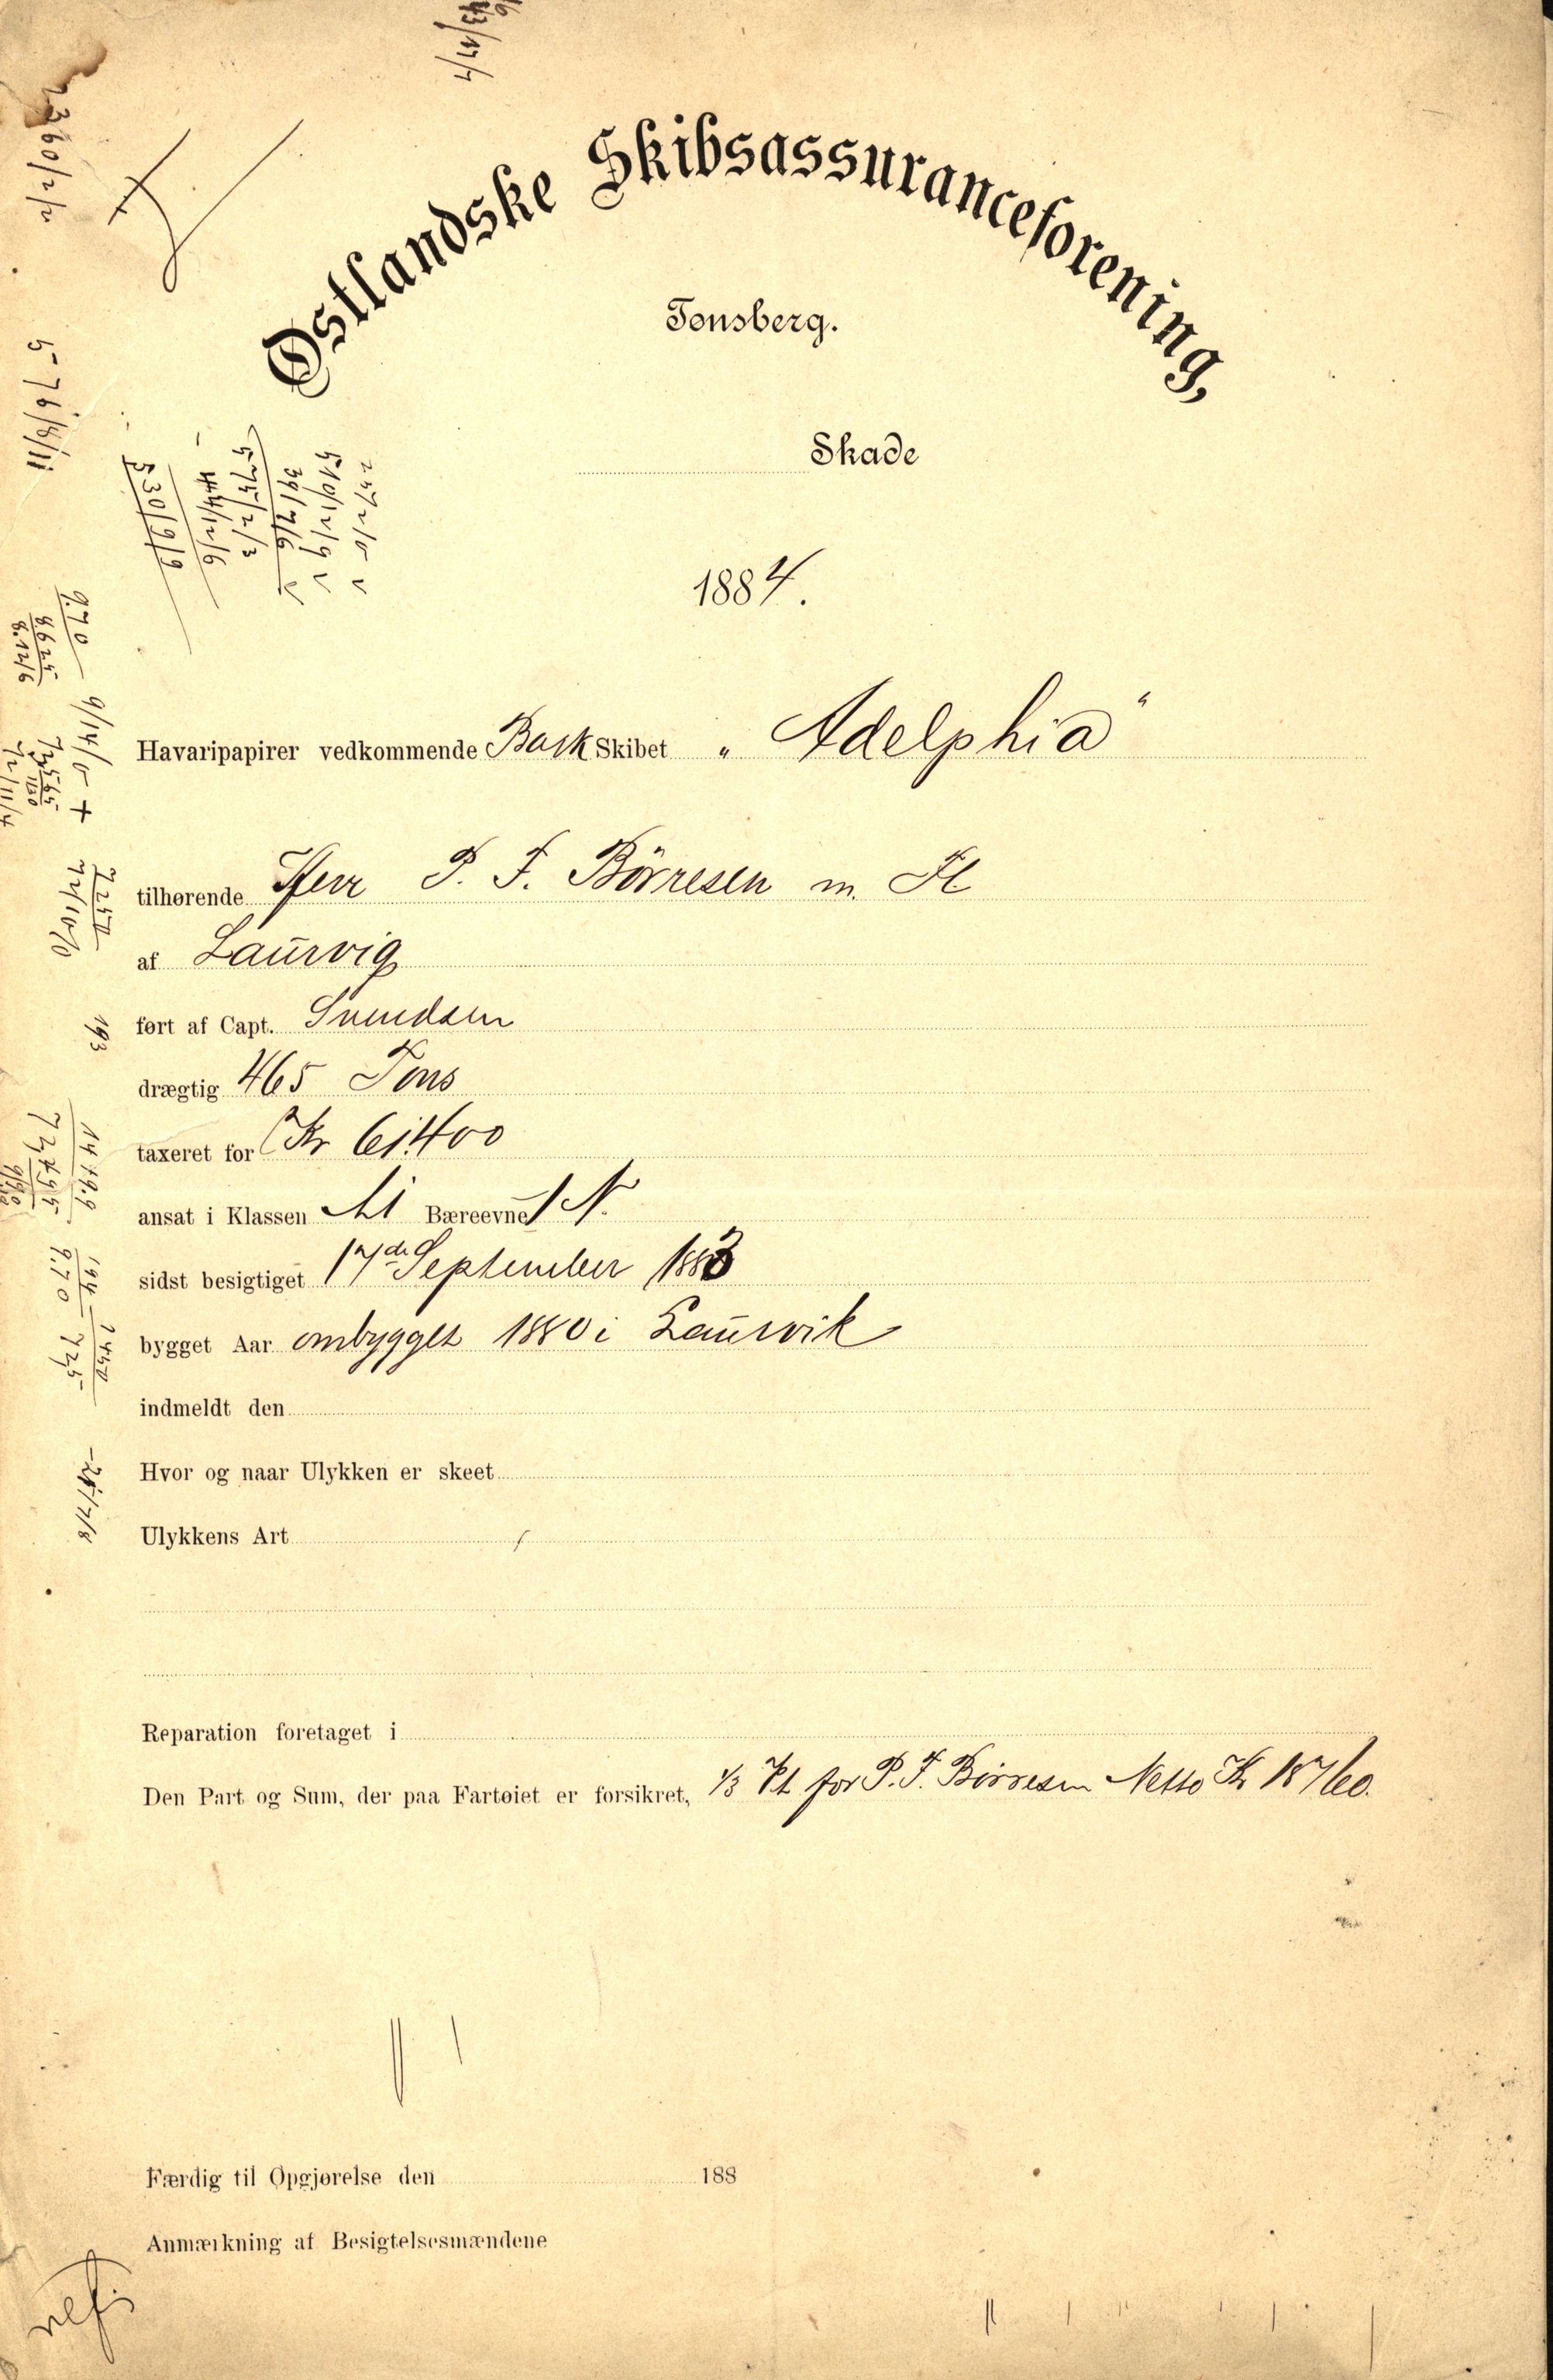 Østlandske Skibsassuranceforening,
Tønsberg.
Skade
1884.
Havaripapirer vedkommende Bark Skibet „ Adelphia "
tilhørende Herr P. F. Børresen m. Fl
af Laurvig
ført af Capt. Svendsen
drægtig 465 Tons
taxeret for Kr 61400
ansat i Klassen A1 Bæreevne 1 N.
sidst besigtiget 17de September 1883
bygget Aar ombygget 1880 i Laurvik
indmeldt den
Hvor og naar Ulykken er skeet
Ulykkens Art
Reparation foretaget i
Den Part og Sum, der paa Fartøiet er forsikret, 1/3 Pt for P. F. Børresen Netto Kr 18760.
Færdig til Opgjørelse den 188
Anmærkning af Besigtelsesmændene
2360/2/2
576/8/11
257/2/0 v
510/12/9 v
39/7/6 v
575/2/3
44/12/6
530/9/9
9.70
8.625
8.12/6
9/14/0 +
193